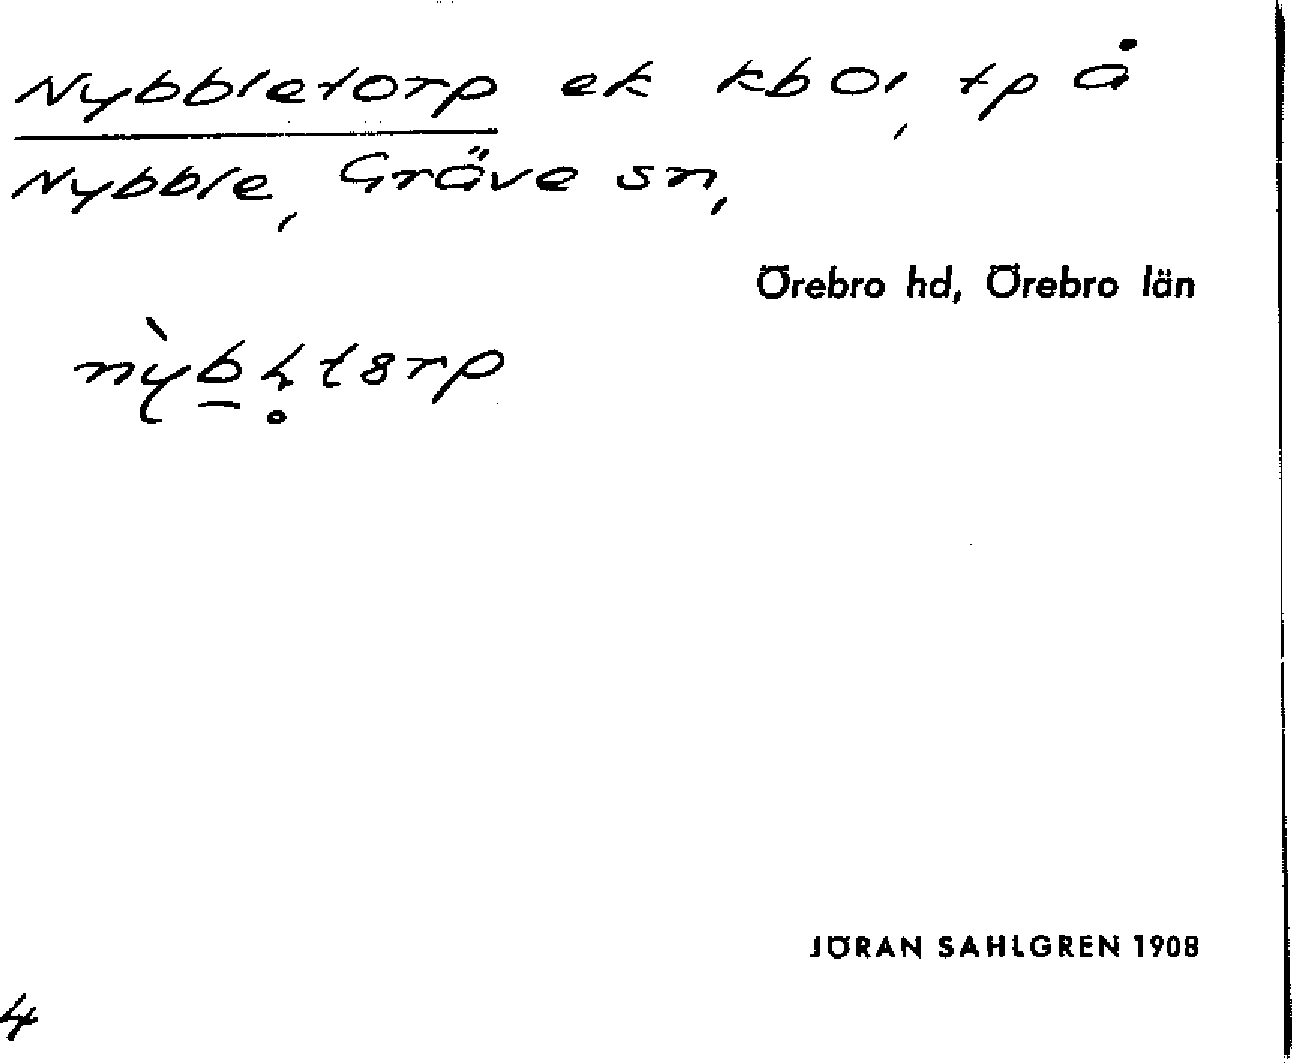 Nybbletorp ek kbol, tp å
Nybble, Gräve sn,
Örebro hd, Örebro län
JÖRAN SAHLGREN 1908
4